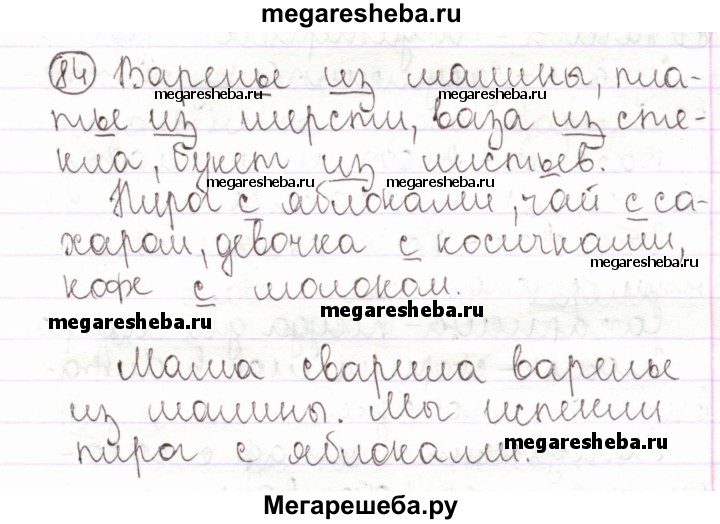 megaresheba.ru
84 Варенье из малины, пла-
megaresheba.ru megaresheba.ru
тье из шерсти, ваза из сте-
megaresheba.ru
кла, букет из листьев.
megaresheba.ru megaresheba.ru
Пирог с яблоками, чай с са-
харом, девочка с косичками,
megaresheba.ru
кофе с молоком.
megaresheba.ru megaresheba.ru
Мама сварила варенье
из малины. Мы испекли
megaresheba.ru
пирог с яблоками.
Мегарешеба.ру